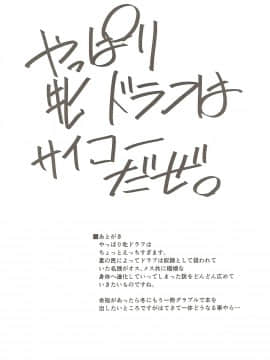 やっぱり
牝ドラフは
サイコー
だぜ。
■あとがき
やっぱり牝ドラフは
ちょっとえっちすぎます。
星の民によってドラフは奴隷として扱われて
いた名残がオス、メス共に極端な
身体へ進化していってしまった説をどんどん広めて
いきたいものですね。
余裕があったら冬にもう一冊グラブルで本を
出したいところですがはてさて一体どうなる事やら…